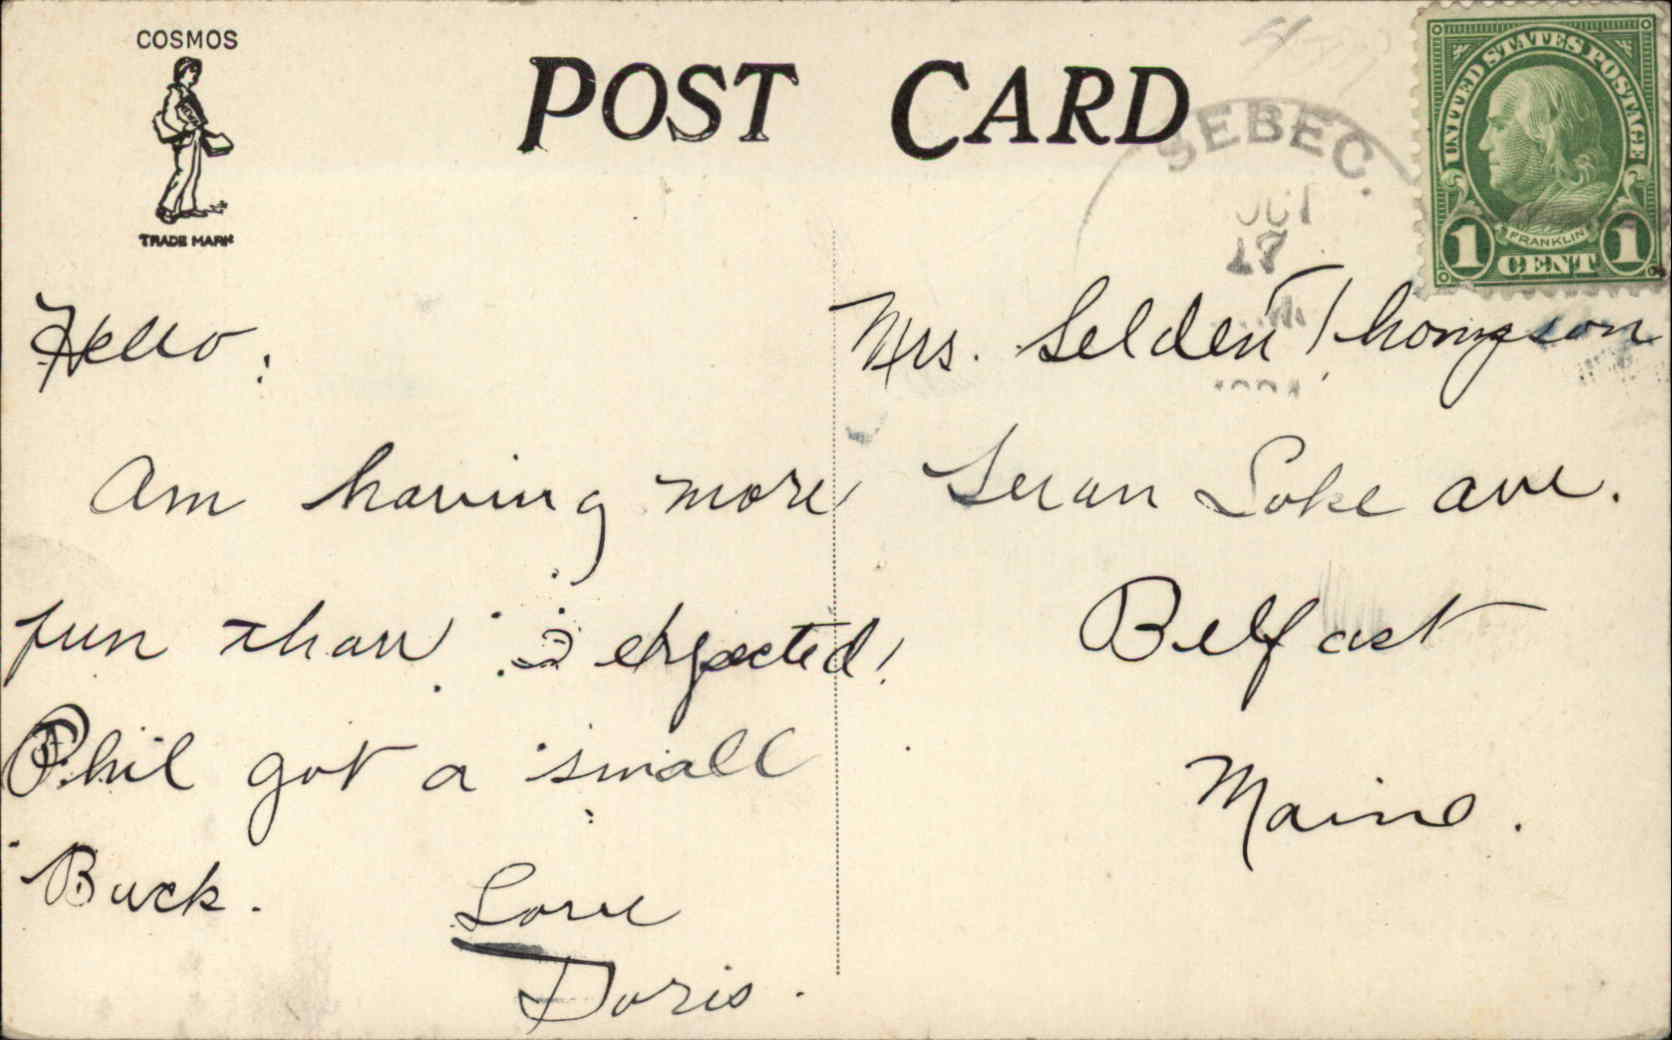 COSMOS
TRADE MARK
POST CARD
SEBEC.
OCT
17
UNITED STATES POSTAGE
FRANKLIN
1 CENT 1
Hello:
Am having more
fun than I expected!
Phil got a small
Buck.
Love
Doris.
Mrs. Selden Thompson
Swan Lake ave.
Belfast
Maine.